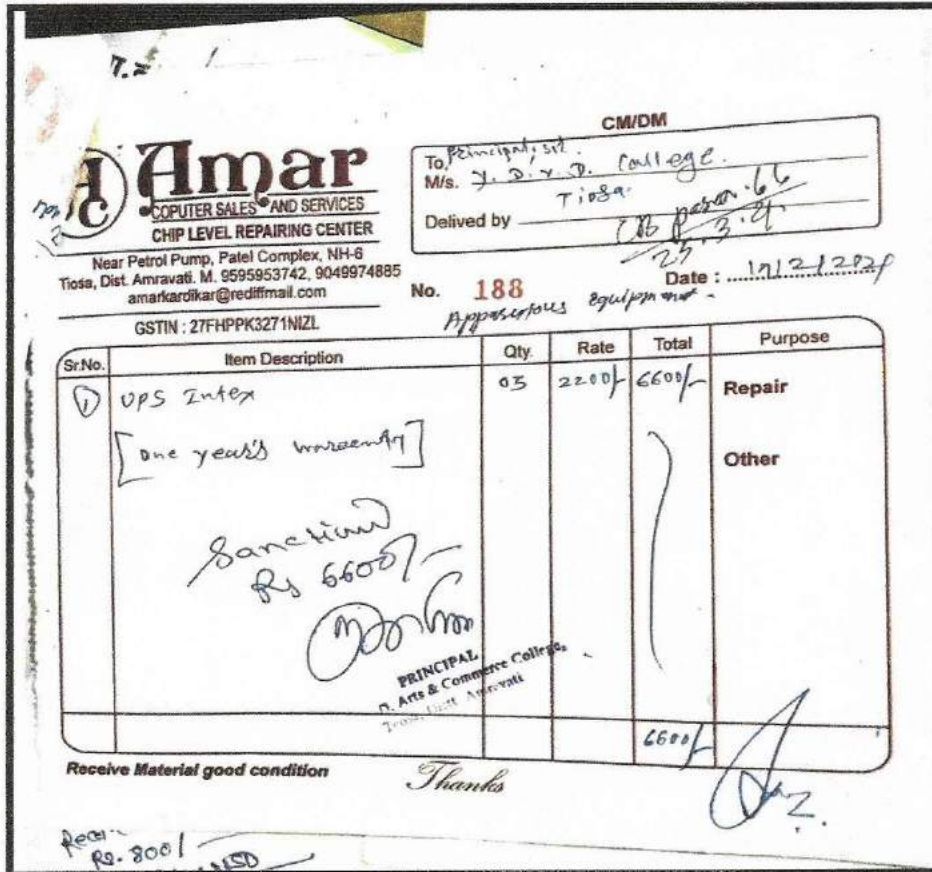 CM/DM
Amar
COPUTER SALES AND SERVICES
CHIP LEVEL REPAIRING CENTER
Near Petrol Pump, Patel Complex, NH-6
Tiosa, Dist. Amravati. M. 9595953742, 9049974885
amarkardikar@rediffmail.com
GSTIN : 27FHPPK3271NIZL
To, Principal, sir.
M/s. Y. D. V. D. College.
Tiosa.
Delived by
23.3.21
No. 188
Date :
equipment
Sr.No. Item Description Qty. Rate Total Purpose
1 UPS Intex 03 2200/- 6600/- Repair
[One year's warranty] Other
Sanctioned
Rs 6600/-
PRINCIPAL
Arts & Commerce College,
Amravati
6600/-
Receive Material good condition
Thanks
Rs. 800/